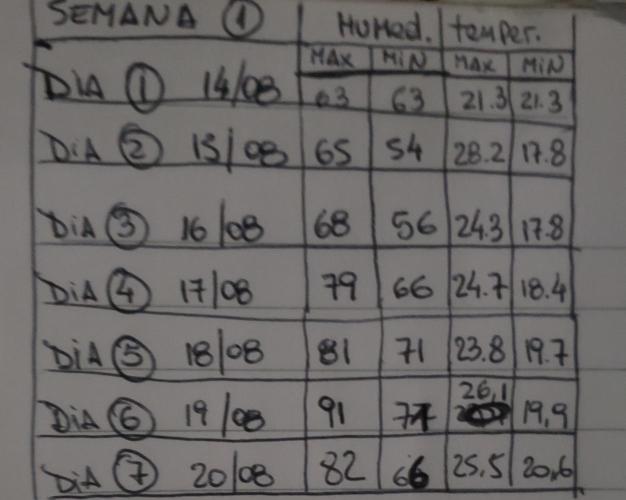 SEMANA 1 HUMED. temper.
MAX MiN MAX MiN
DIA 1 14/08 63 63 21.3 21.3
DiA 2 15/08 65 54 28.2 17.8
DiA 3 16/08 68 56 24.3 17.8
DiA 4 17/08 79 66 24.7 18.4
DiA 5 18/08 81 71 23.8 19.7
DiA 6 19/08 91 26,1 19,9
DiA 7 20/08 82 66 25,5 20,6